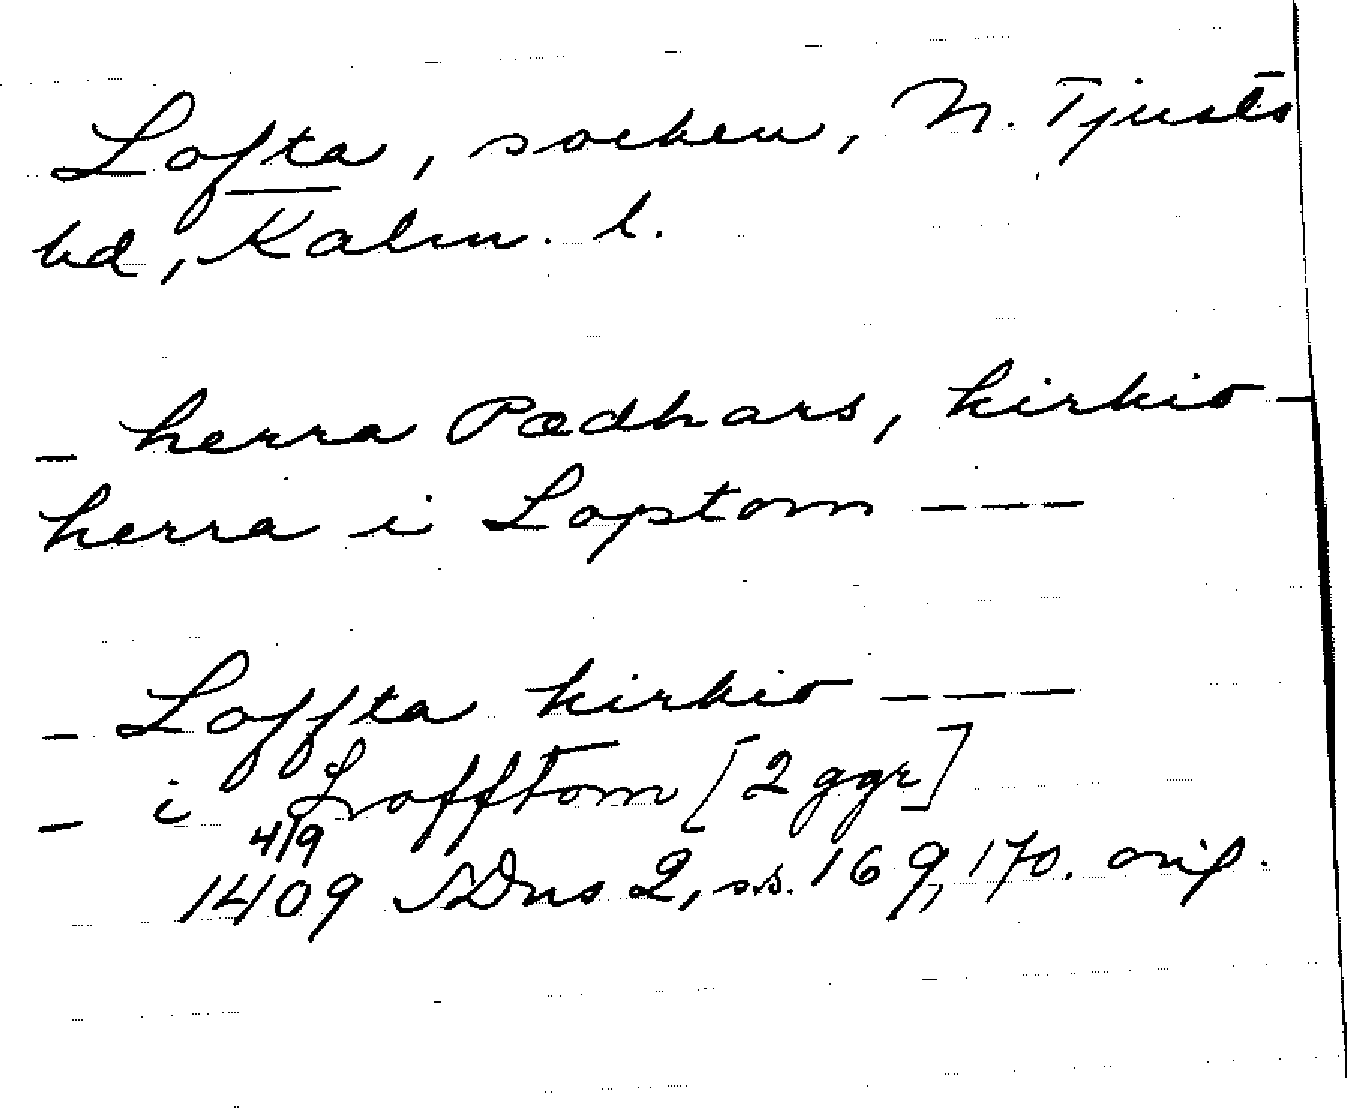 Lofta, socken, N. Tjusts
hd, Kalm. l.
– herra Pædhars, kirkio-
herra i Loptom ---
– Loffta kirkio ---
– i Lofftom [2 ggr]
4/9
1409 SDns 2, s.s. 169, 170. orig.